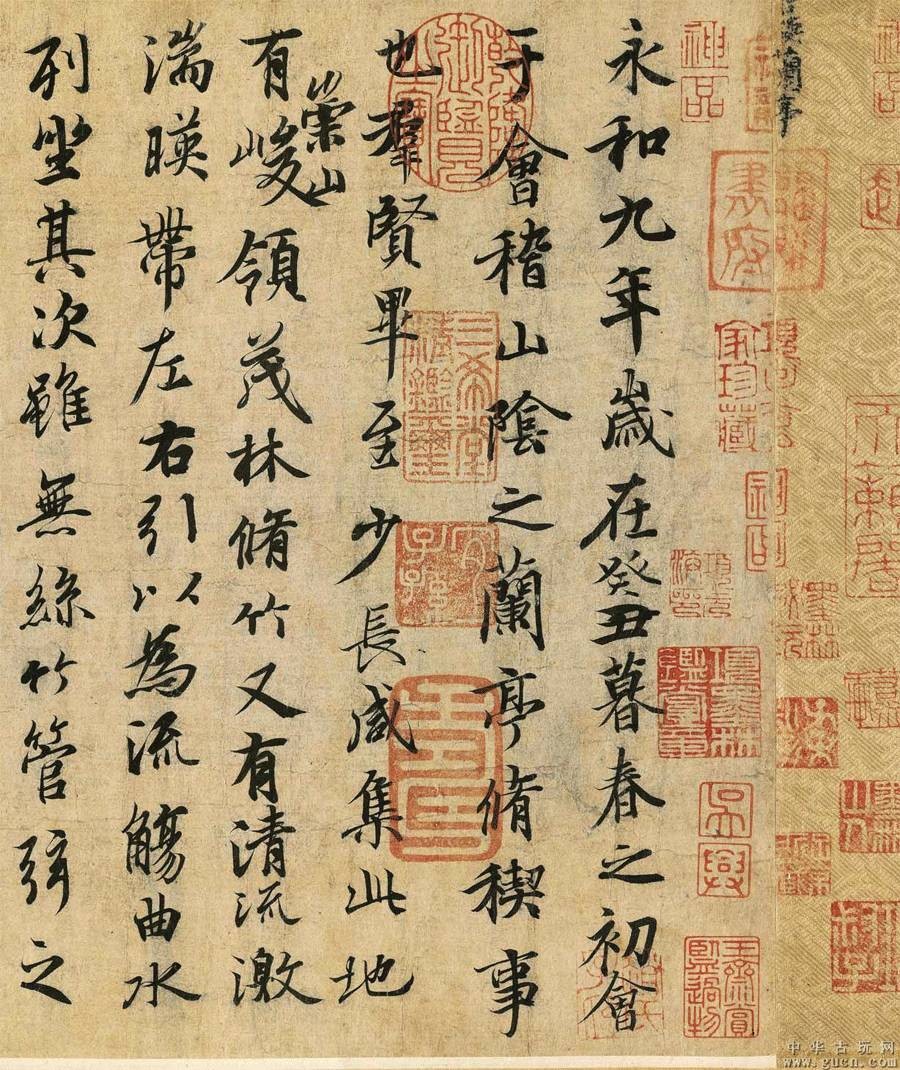 神品
吳興
永和九年歲在癸丑暮春之初會
于會稽山陰之蘭亭脩稧事
三希堂精鑑璽
宜子孫
也羣賢畢至少長咸集此地
有崇山峻領茂林脩竹又有清流激
湍暎帶左右引以為流觴曲水
列坐其次雖無絲竹管弦之
中华古玩网
www.gucn.com